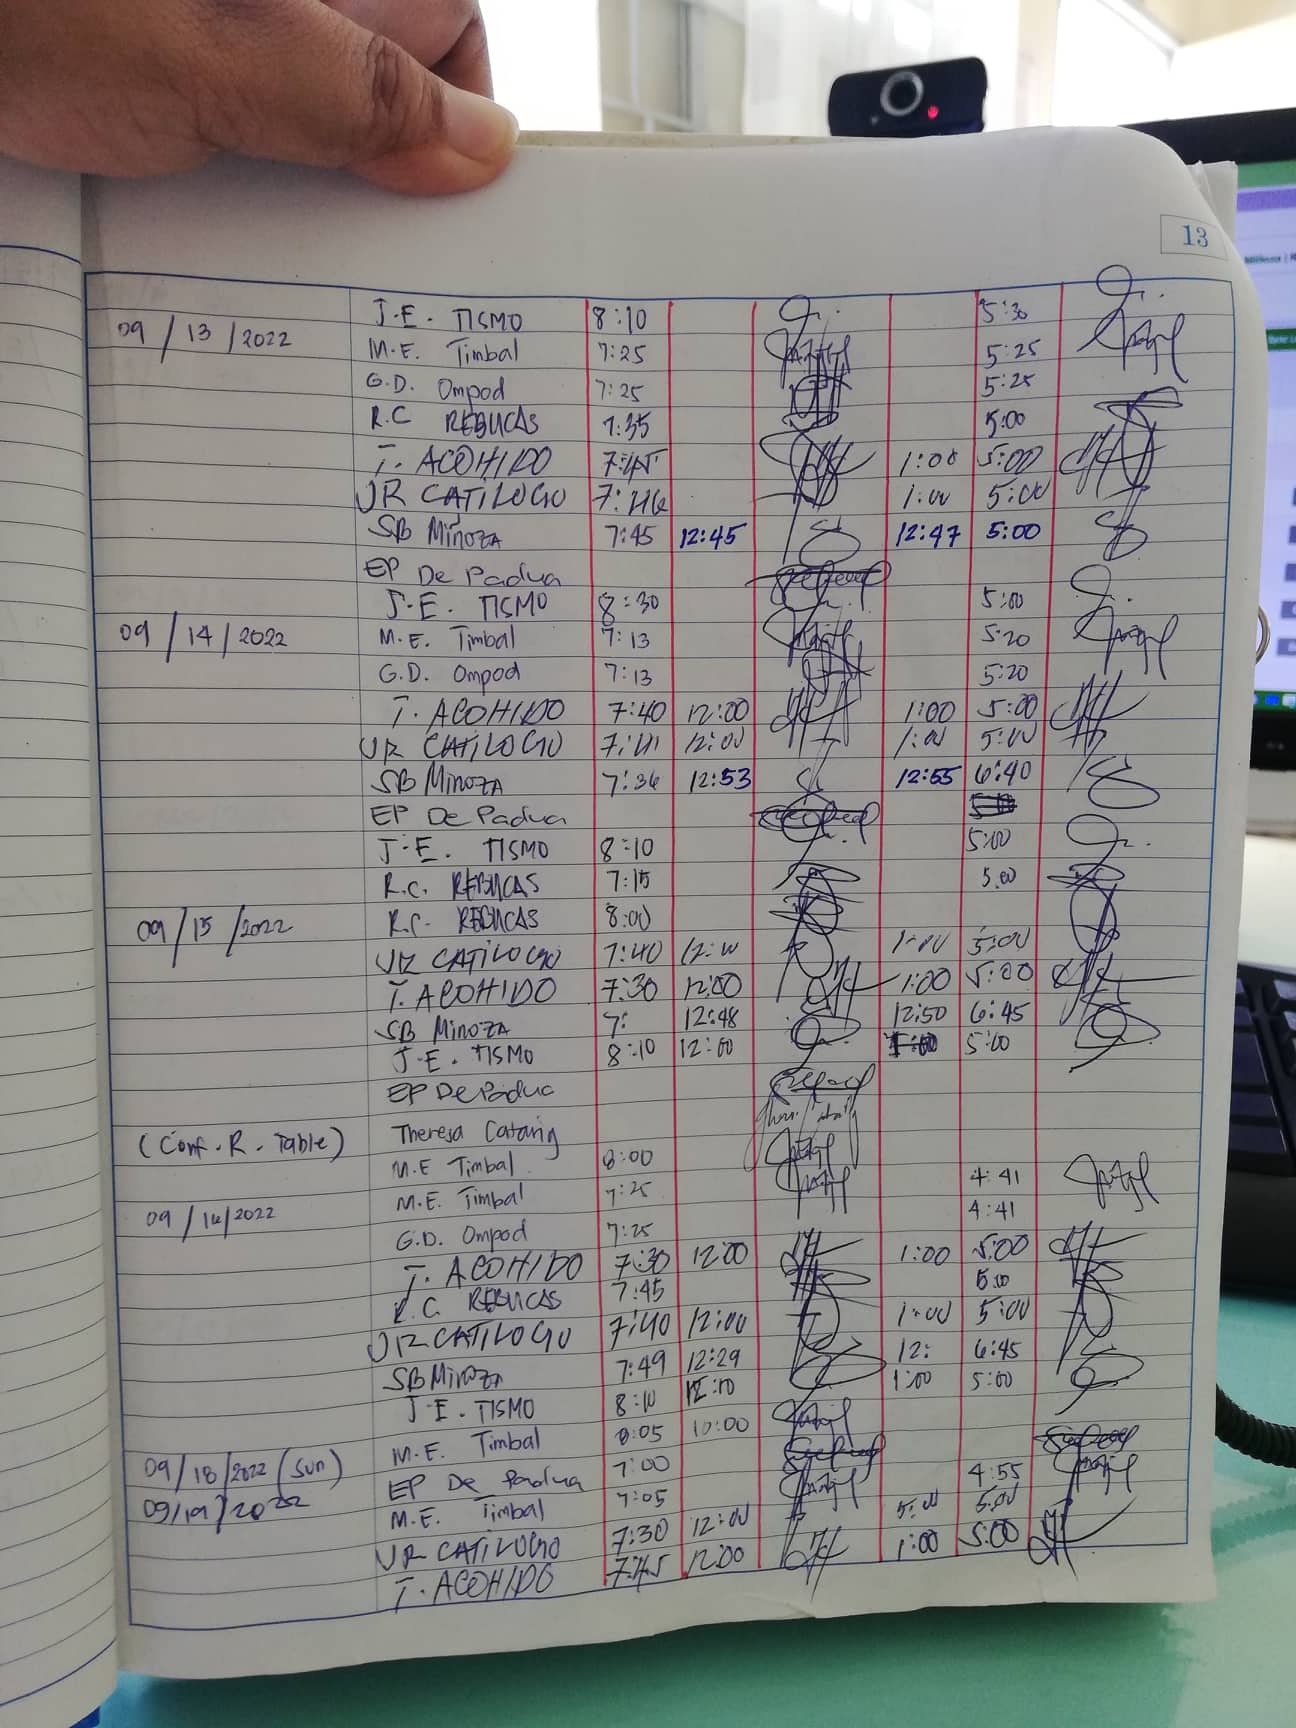 13
J.E. TISMO 8:10 5:30
09/13/2022 M.E. Timbal 7:25 5:25
G.D. Ompod 7:25 5:25
R.C REBUCAS 7:35 5:00
T. ACOHIDO 7:45 1:00 5:00
JR CATILOGO 7:46 1:00 5:00
SB Minoza 7:45 12:45 12:47 5:00
EP De Padua
J.E. TISMO 8:30 5:00
09/14/2022 M.E. Timbal 7:13 5:20
G.D. Ompod 7:13 5:20
T. ACOHIDO 7:40 12:00 1:00 5:00
JR CATILOGO 7:41 12:00 1:00 5:00
SB Minoza 7:36 12:53 12:55 6:40
EP De Padua
J.E. TISMO 8:10 5:00
R.C. REBUCAS 7:15 5:00
09/15/2022 R.C. REBUCAS 8:00
JR CATILOGO 7:40 12:00 1:00 5:00
T. ACOHIDO 7:30 12:00 1:00 5:00
SB Minoza 7: 12:48 12:50 6:45
J.E. TISMO 8:10 12:00 1:00 5:00
EP De Padua
(Conf. R. Table) Theresa Catang
M.E Timbal 8:00
09/16/2022 M.E. Timbal 7:25 4:41
G.D. Ompod 7:25 4:41
T. ACOHIDO 7:30 12:00 1:00 5:00
R.C. REBUCAS 7:45 5:00
JR CATILOGO 7:40 12:00 1:00 5:00
SB Minoza 7:49 12:29 12: 6:45
J.E. TISMO 8:10 12:10 1:00 5:00
09/18/2022 (Sun) M.E. Timbal 8:05 10:00
09/19/2022 EP De Padua 7:00
M.E. Timbal 7:05 4:55
JR CATILOGO 7:30 12:00 5:00
T. ACOHIDO 7:45 12:00 1:00 5:00